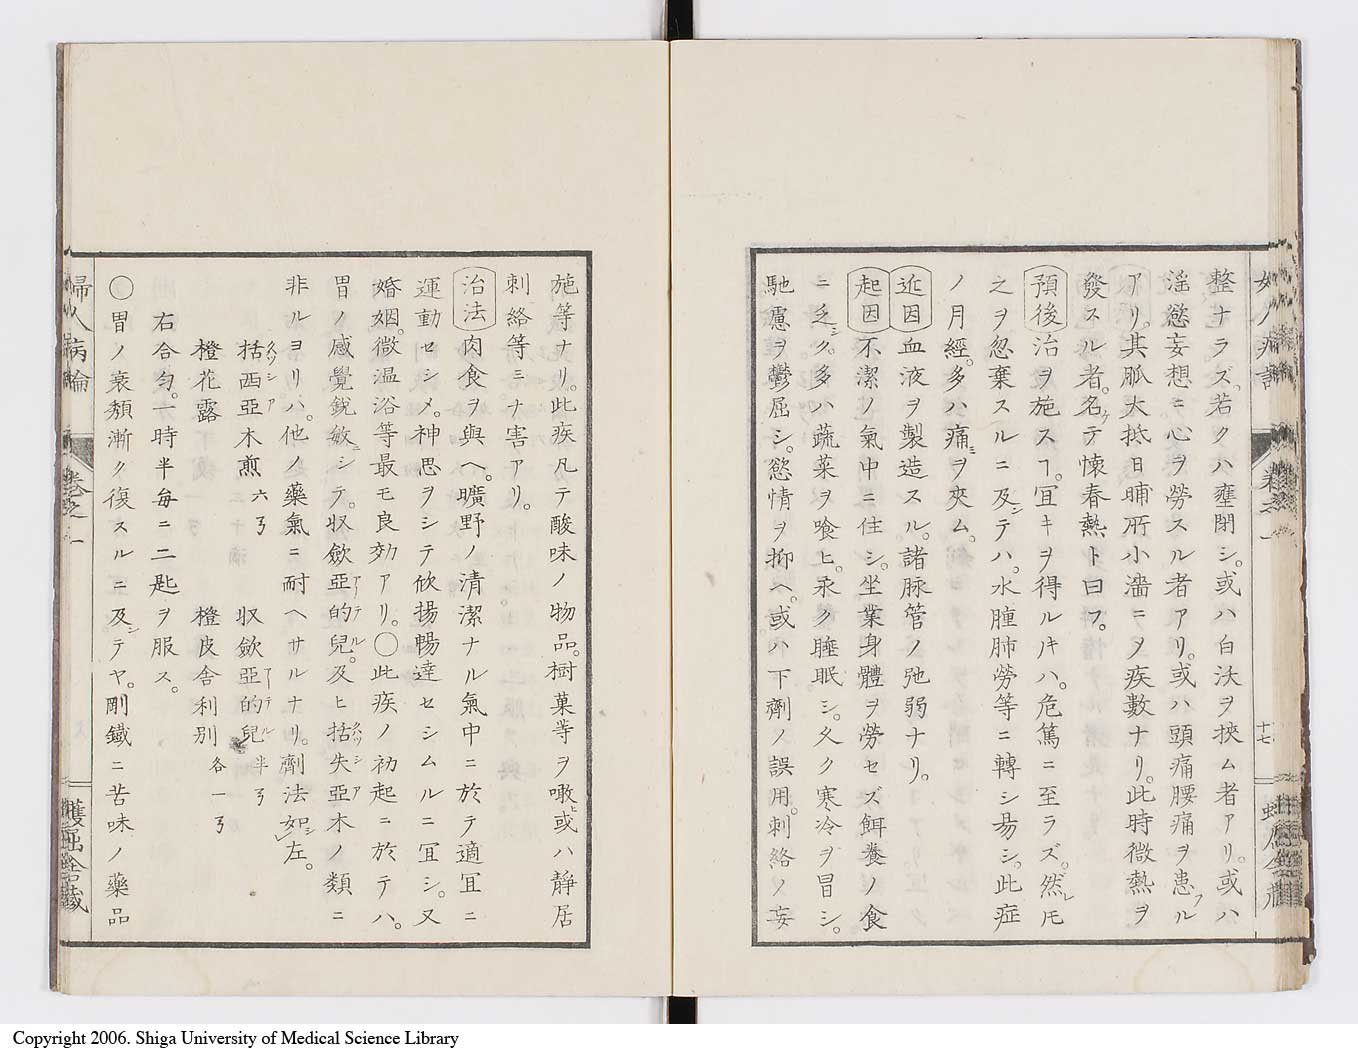 整ナラズ。若クハ壅閉シ。或ハ白沃ヲ挾ム者アリ。或ハ
淫慾妄想ニ心ヲ勞スル者アリ。或ハ頭痛腰痛ヲ患フル
アリ。其脈大抵日晡所小濇ニヲ疾數ナリ。此時微熱ヲ
發スル者。名ケテ懷春熱ト曰フ。
預後 治ヲ施スヿ。冝キヲ得ルキハ。危篤ニ至ラズ。然レ𪜈
之ヲ忽棄スルニ及シテハ。水腫肺勞等ニ轉シ易シ。此症
ノ月經。多ハ痛ミヲ夾ム。
近因 血液ヲ製造スル。諸脉管ノ弛弱ナリ。
起因 不潔ノ氣中ニ住シ。坐業身體ヲ勞セズ餌養ノ食
ニ乏シク。多ハ蔬菜ヲ喰ヒ。永ク睡眠シ。久ク寒冷ヲ冒シ。
馳慮ヲ鬱屈シ。慾情ヲ抑ヘ。或ハ下劑ノ誤用。刺絡ノ妄
十七
施等ナリ。此疾凡テ酸味ノ物品。樹菓等ヲ噉ヒ或ハ靜居
刺絡等ミナ害アリ。
治法 肉食ヲ與ヘ。曠野ノ清潔ナル氣中ニ於テ適冝ニ
運動セシメ。神思ヲシテ欣揚暢達セシムルニ冝シ。又
婚姻。微温浴等最モ良効アリ。〇此疾ノ初起ニ於テハ。
胃ノ感覺銳敏ニシテ。収歛亞的兒アーテル。及ヒ括失亞クワシア木ノ類ニ
非ルヨリハ。他ノ藥氣ニ耐ヘサルナリ。劑法如シレ左。
括西亞クワシア木煎 六ヲ 収歛亞的兒アーテル 半ヲ
橙花露 橙皮舍利别 各一ヲ
右合匀。一時半每ニ二匙ヲ服ス。
〇胃ノ衰頽漸ク復スルニ及シテヤ。剛鐵ニ苦味ノ藥品
婦人病論
卷之一
蠖屈舍藏